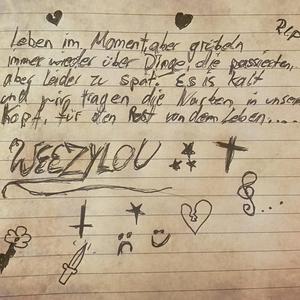 R.I.P
Leben im Moment, aber grübeln
immer wieder über Dinge, die passierten,
aber leider zu spät. Es is kalt
und wir tragen die Narben, in unserm
Kopf, für den Rest von dem Leben.....
WEEZYLOU